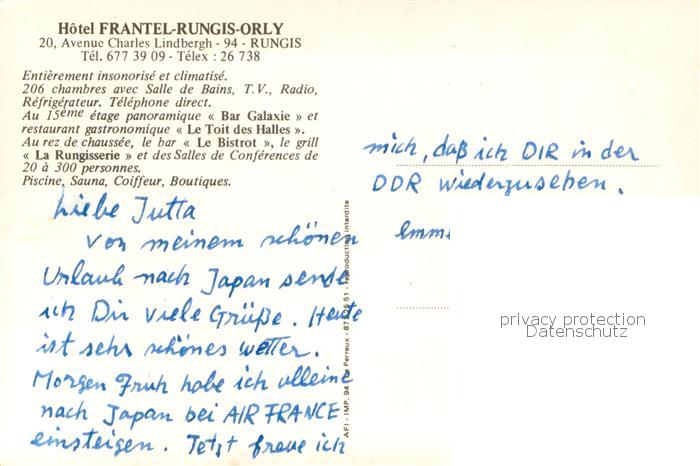 Hôtel FRANTEL-RUNGIS-ORLY
20, Avenue Charles Lindbergh - 94 - RUNGIS
Tél. 677 39 09 - Télex : 26 738
Entièrement insonorisé et climatisé.
206 chambres avec Salle de Bains, T.V., Radio,
Réfrigérateur. Téléphone direct.
Au 15ème étage panoramique « Bar Galaxie » et
restaurant gastronomique « Le Toit des Halles ».
Au rez de chaussée, le bar « Le Bistrot », le grill
« La Rungisserie » et des Salles de Conférences de
20 à 300 personnes.
Piscine, Sauna, Coiffeur, Boutiques.
Liebe Jutta
Von meinem schönen
Urlaub nach Japan sende
ich Dir viele Grüße. Heute
ist sehr schönes wetter.
Morgen Früh habe ich alleine
nach Japan bei AIR FRANCE
einsteigen. Jetzt freue ich
mich, daß ich DIR in der
DDR wiederzusehen.
AFI - IMP. 94 Le Perreux - reproduction interdite
privacy protection
Datenschutz